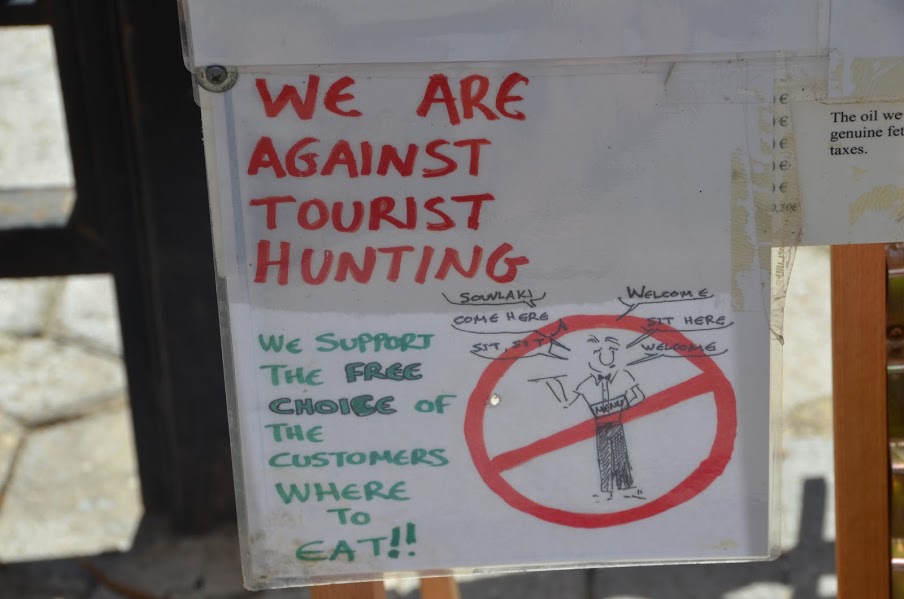 WE ARE
AGAINST
TOURIST
HUNTING
WE SUPPORT
THE FREE
CHOICE OF
THE
CUSTOMERS
WHERE
TO
EAT!!
SOUVLAKI
COME HERE
SIT, SIT
WELCOME
SIT HERE
WELCOME
MENU
€
€
€
€
€
The oil we
genuine fet
taxes.